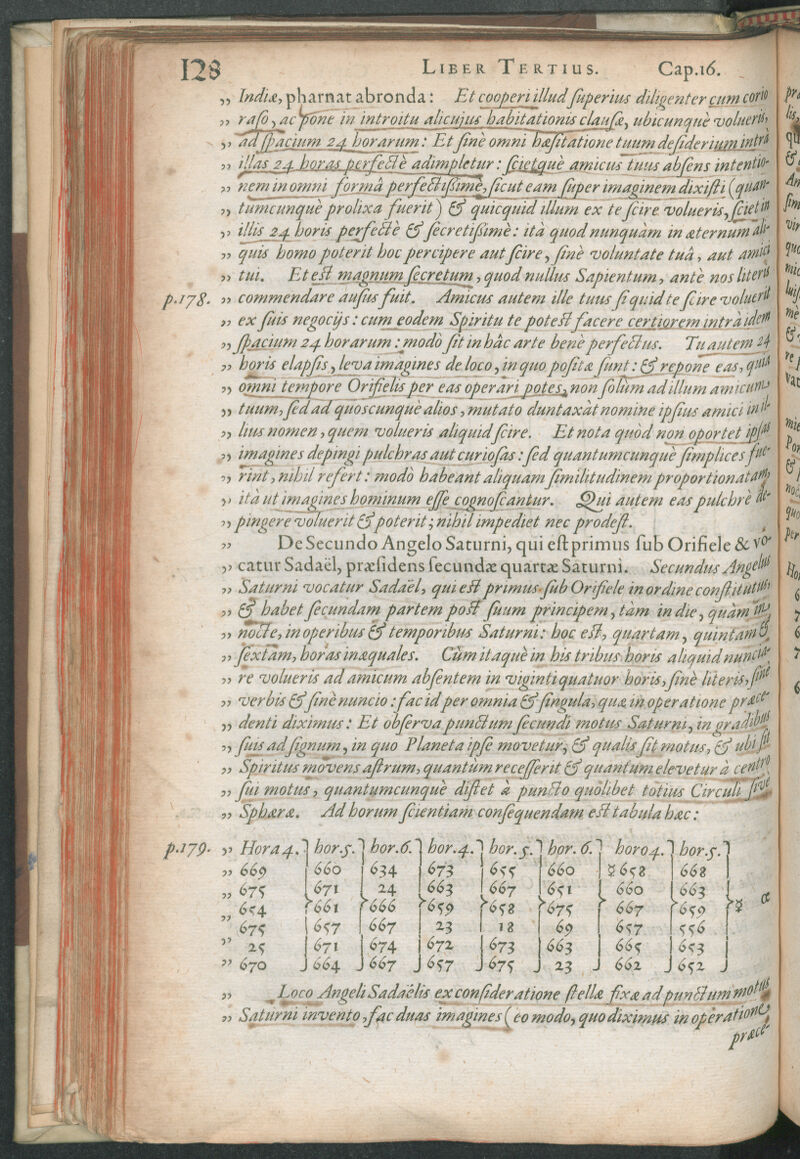 128 LIBER TERTIUS. Cap.16.
„ Indiæ, pharnat abronda: Et cooperi illud superius diligenter cum corio
„ raso, ac pone in introitu alicujus habitationis clausæ, ubicunquè volueris,
„ ad spacium 24 horarum: Et sinè omni hæsitatione tuum desiderium intrà
„ illas 24 horas perfectè adimpletur: scietquè amicus tuus absens intentio-
„ nem in omni formâ perfectissimè, sicut eam super imaginem dixisti (quan-
„ tumcunquè prolixa fuerit) & quicquid illum ex te scire volueris, sciet in
„ illis 24 horis perfectè & secretissimè: ità quod nunquàm in æternum ali-
„ quis homo poterit hoc percipere aut scire, sinè voluntate tuâ, aut amici
„ tui. Et est magnum secretum, quod nullus Sapientum, antè nos literis
p.178. „ commendare ausus fuit. Amicus autem ille tuus si quid te scire voluerit
„ ex suis negocijs: cum eodem Spiritu te potest facere certiorem intrà idem
„ spacium 24 horarum: modò sit in hâc arte benè perfectus. Tu autem 24
„ horis elapsis, leva imagines de loco, in quo positæ sunt: & repone eas, quia
„ omni tempore Orifielis per eas operari potes, non solùm ad illum amicum
„ tuum, sed ad quoscunquè alios, mutato duntaxàt nomine ipsius amici in il-
„ lius nomen, quem volueris aliquid scire. Et nota quòd non oportet ipsas
„ imagines depingi pulchras aut curiosas: sed quantumcunquè simplices fue-
„ rint, nihil refert: modò habeant aliquam similitudinem proportionatam,
„ ità ut imagines hominum esse cognoscantur. Qui autem eas pulchrè de-
„ pingere voluerit & poterit; nihil impediet nec prodest.
„ De Secundo Angelo Saturni, qui est primus sub Orifiele & vo-
„ catur Sadaël, præsidens secundæ quartæ Saturni. Secundus Angelus
„ Saturni vocatur Sadaël, qui est primus sub Orifiele in ordine constitutus,
„ & habet secundam partem post suum principem, tàm in die, quàm in
„ nocte, in operibus & temporibus Saturni: hoc est, quartam, quintam &
„ sextam, horas inæquales. Cùm itaquè in his tribus horis aliquid nuncia-
„ re volueris ad amicum absentem in viginti quatuor horis, sinè literis, sinè
„ verbis & sinè nuncio: fac id per omnia & singula, quæ in operatione præce-
„ denti diximus: Et observa punctum secundi motus Saturni, in gradibus
„ suis ad signum, in quo Planeta ipse movetur, & qualis sit motus, & ubi sit
„ Spiritus movens astrum, quantùm recesserit & quantùm elevetur à centro
„ sui motus, quantumcunquè distet à puncto quolibet totius Circuli sivè
„ Sphæræ. Ad horum scientiam consequendam est tabula hæc:
p.179. „ Hora 4. hor.5. hor.6. hor.4. hor.5. hor.6. horo 4. hor.5.
„ 669 660 634 673 655 660 ☿ 658 668
„ 675 671 24 663 667 651 660 663
„ 654 661 666 659 658 675 667 659 ☿ α
675 657 667 23 18 69 657 556
„ 25 671 674 672 673 663 665 653
„ 670 664 667 657 675 23 662 652
„ Loco Angeli Sadaëlis ex consideratione stellæ fixæ ad punctum motus
„ Saturni invento, fac duas imagines (eo modo, quo diximus in operatione
præce-